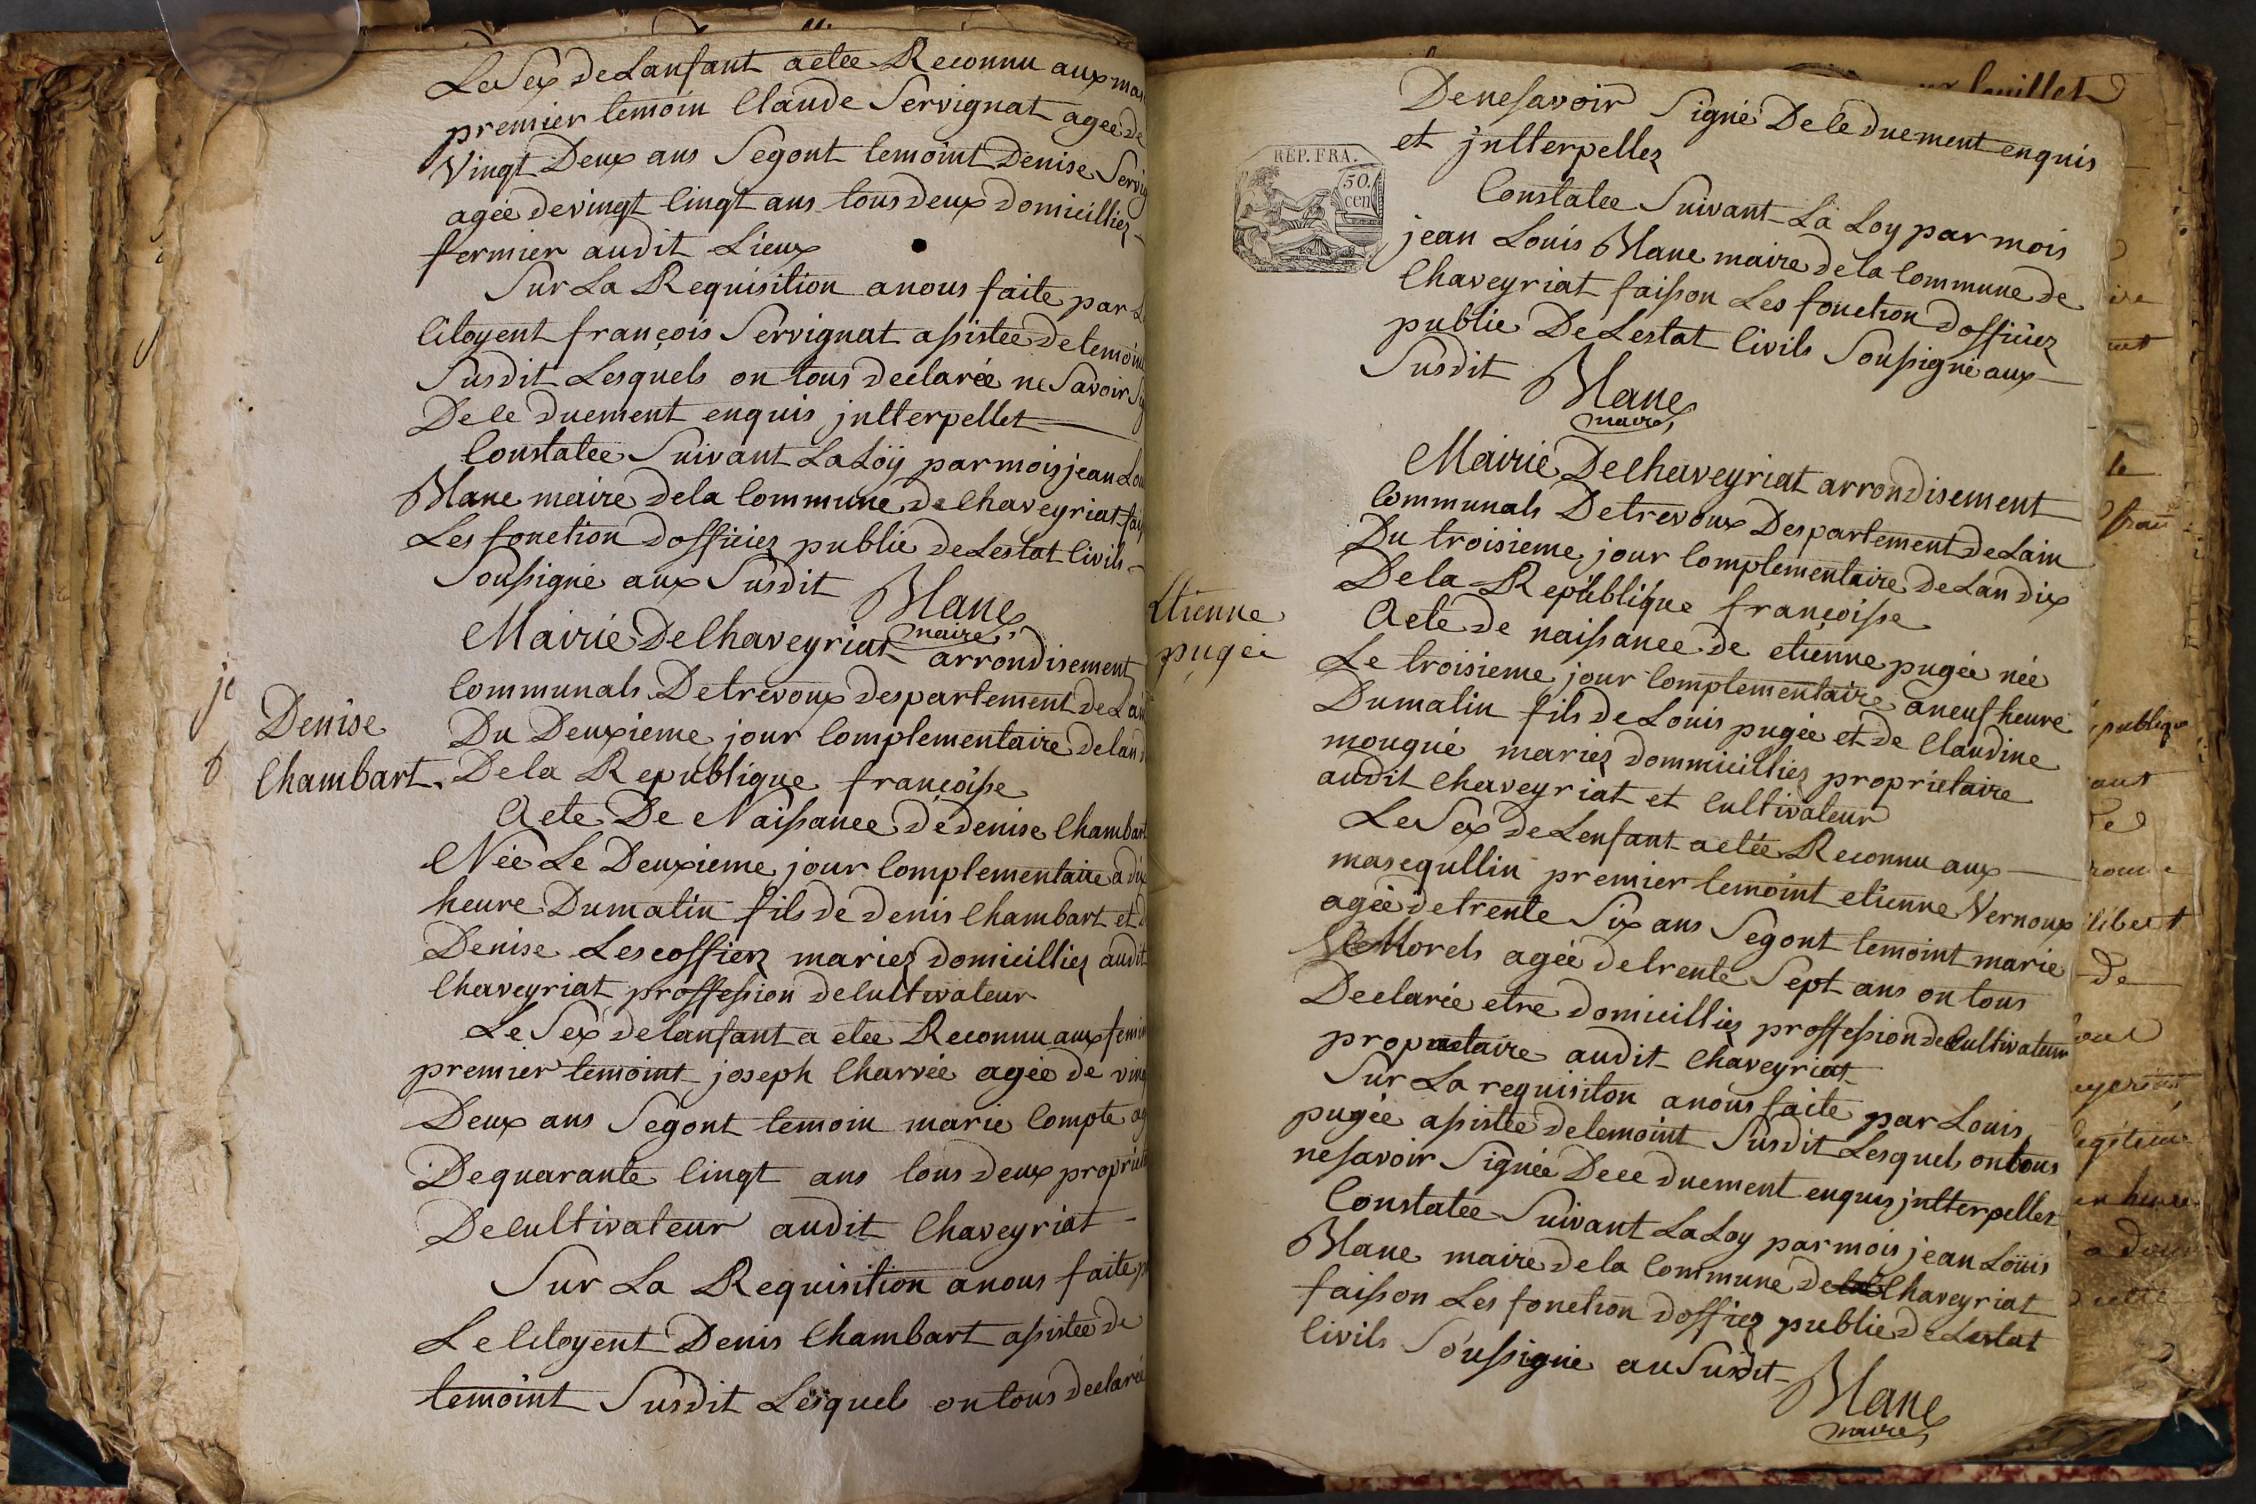 Le Sex de Lanfant aetee Reconnu aux mas
premier temoin Claude Servignat agee de
Vingt Deux ans Segont temoint Denise Servig
agée de vingt Cingt ans tous deux domicilliez
fermier audit Lieux
Sur La Requisition a nous faite par Le
Citoyent françois Servignat asistee de temoint
Susdit Lesquels on tous declarée ne Savoir Sig
De ce duement enquis jnlterpellet
Constatee Suivant La Loÿ par mois jean Lou
Blanc maire de la Commune de Chaveyriat fais
Les fonction dofficiez public de Lestat Civils
Soussigné aux Susdit Blanc
maire
Mairie De Chaveyriat arrondisement
Communals De trevoux despartement de Lain
Denise
Chambart.
Du Deuxieme jour Complementaire de lan d
De la Republique françoisse
Acte De Naissance de denise Chambart
Née Le Deuxieme jour Complementaire a dix
heure Du matin fils de denis Chambart et d
Denise Lescoffier mariez domicilliez audit
Chaveyriat proffession de cultivateur
Le Sex de lanfant a etee Reconnu aux femin
premier temoint joseph Charvée agée de ving
Deux ans Segont temoin marie Compte ag
De quarante Cingt ans tous deux propriet
De cultivateur audit Chaveyriat
Sur La Requisition a nous faite p
Le Citoyent Denis Chambart asistee de
temoint Susdit Lesquels on tous declaree
De ne savoir Signé De ce duement enquis
et jnlterpellez
REP. FRA.
50.
cen
Constatee Suivant La Loy par mois
jean Louis Blanc maire de la Commune de
Chaveyriat faisson Les fonction dofficiez
public De Lestat Civils Soussigné aux
Susdit Blanc
maire
Mairie De Chaveyriat arrondisement
Communals De trevoux Despartement de Lain
Du troisieme jour Complementaire de Lan dix
De la Republique françoisse
Etienne
pugée
Acte de naissance de etienne pugée née
Le troisieme jour Complementaire a neuf heure
Du matin fils de Louis pugée et de Claudine
mougné mariez dommicilliez propriétaire
audit Chaveyriat et Cultivateur
Le Sex de Lenfant aetée Reconnu aux
masequllin premier temoint etienne Vernoux
agée de trente Six ans Segont temoint marie
Morels agée de trente Sept ans on tous
Declarée etre domicilliez proffession de Cultivateur
propriietaire audit Chaveyriat
Sur La requisiton a nous faite par Louis
pugée asistée de temoint Susdit Lesquels on tous
ne savoir Signée De ce duement enquis jnlterpellez
Constatee Suivant La Loy par mois jean Loüis
Blanc maire de la Commune de Chaveyriat
faisson Les fonction dofficz public de Lestat
Civils Soussigné au Susdit
Blanc
maire